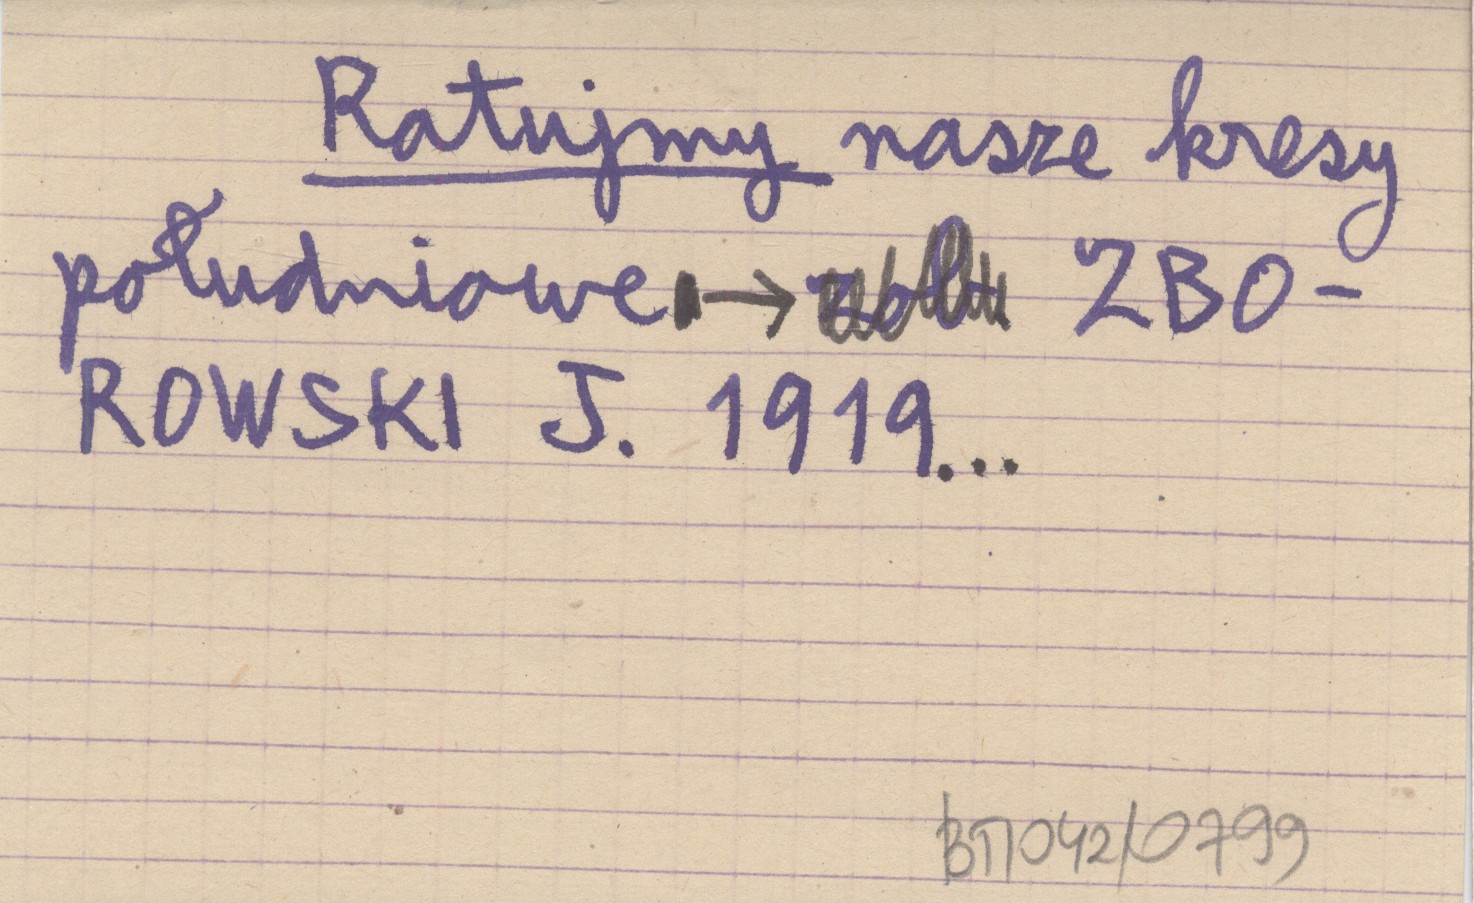 Ratujmy nasze kresy
południowe → ZBO-
ROWSKI J. 1919...
ВП042/0799